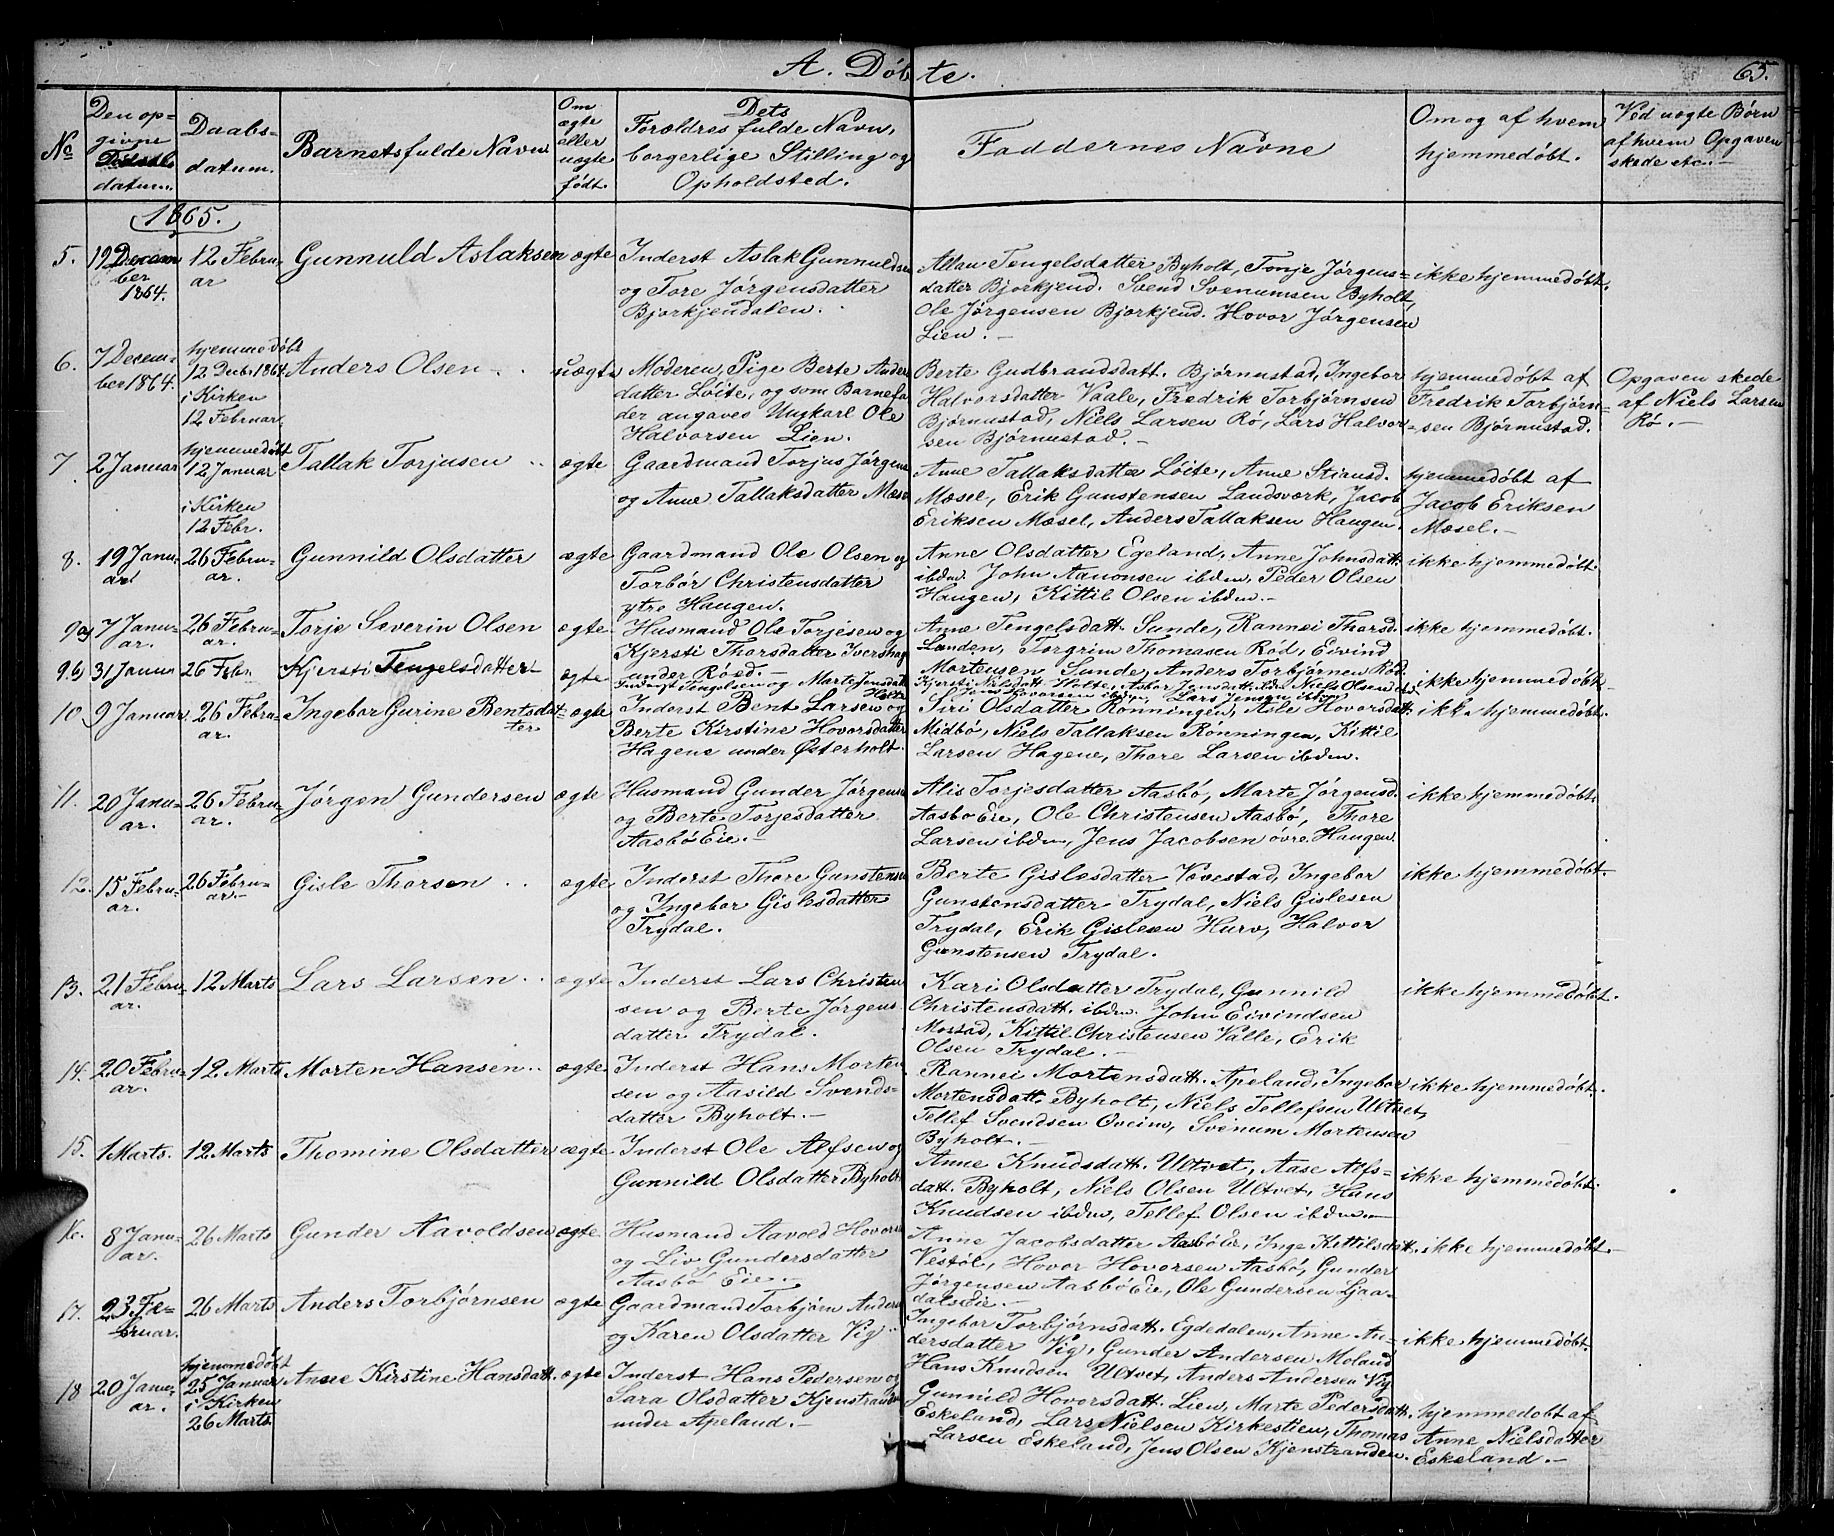 A. Döbte.
65.
No
Den op-
givne
datum.
Daabs-
datum.
Barnets fulde Navn
Om
ægte
eller
uægte
født.
Dets
Forældres fulde Navn,
borgerlige Stilling og
Opholdsted.
Faddernes Navne
Om og af hvem
hjemmedöbt.
Ved uægte Børn
af hvem Opgaven
skede etc.
1865.
5. 19 Decem
ber
1864.
12 Febru-
ar
Gunnuld Aslaksen
ægte
Inderst Aslak Gunnuldsen
og Tore Jörgensdatter
Bjorkjendalen.
Tengelsdatter Byholt, Tonje Jörgens-
datter Bjorkjend. Svend Svenumsen Byholt,
Ole Jörgensen Bjorkjend. Hovor Jörgensen
Lien.
ikke hjemmedöbt.
6. 7 Decem-
ber 1864.
hjemmedöbt
12 Decbr 1864
i Kirken
12 Februar
Anders Olsen
uægte
Moderen, Pige Berte Anders
datter Löite, og som Barnefa
der angaves Ungkarl Ole
Halvorsen Lien.
Berte Gudbrandsdatt. Björnustad, Ingebor
Halvorsdatter Vaale, Fredrik Torbjörnsen
Björnustad, Niels Larsen Rö, Lars Halvor
sen Björnustad.
hjemmedöbt af
Fredrik Torbjörn-
sen Björnustad.
Opgaven skede
af Niels Larsen
Rö.
7. 2 Januar
hjemmedöbt
12 Januar
i Kirken
12 Febr.
Tallak Torjusen
ægte
Gaardmand Torjus Jörgens
og Anne Tallaksdatter Mæsel
Anne Tallaksdatter Löite, Anne Stiansd.
Mæsel, Erik Gunstensen Landsværk, Jacob
Eriksen Mæsel, Anders Tallaksen Haugen.
hjemmedöbt af
Jacob Eriksen
Mæsel.
8. 19 Janu-
ar
26 Febru-
ar.
Gunnild Olsdatter
ægte
Gaardmand Ole Olsen og
Torbör Christensdatter
ytre Haugen.
Anne Olsdatter Egeland, Anne Johnsdatt.
ibdm. John Aanonsen ibdm, Peder Olsen
Haugen, Kittil Olsen ibdm.
ikke hjemmedöbt.
9a 7 Janu-
ar.
26 Febru-
ar.
Torje Severin Olsen
ægte
Husmand Ole Torjesen og
Kjersti Thorsdatter
under Röed.
Anne Tengelsdatt. Sunde, Rannei Thorsd.
Landen, Torgrim Thomasen Röd, Eivind
Mortensen Sunde, Anders Torbjörnsen Röd.
ikke hjemmedöbt.
9b 31 Januar
26 Febr.
Kjersti Tengelsdatter
ægte
Tengelsen og Marte Jensdatt.
Holte
Kjersti Nielsdatt. Holte, Jensdatt. ibdm Niels Olsen
Jens Hovorsen ibdm, Lars Jensen ibdm
ikke hjemmedöbt.
10 9 Januar
26 Febru-
ar.
Ingebor Gurine Bentsdat-
ter
ægte
Inderst Bent Larsen og
Berte Kirstine Hovorsdatter
Hagene under Österholt.
Siri Olsdatter Rönningen, Asle Hovorsdatt.
Midbö, Niels Tallaksen Rönningen, Kittil
Larsen Hagene, Thore Larsen ibdm.
ikke hjemmedöbt.
11. 20 Janu-
ar.
26 Febru-
ar.
Jörgen Gundersen
ægte
Husmand Gunder Jörgensen
og Berte Torjesdatter
Aasbö Eie.
Alis Torjesdatter Aasbö, Marte Jörgensd.
Aasbo Eie, Ole Christensen Aasbö, Thore
Larsen ibdm, Jens Jacobsen övre Haugen.
ikke hjemmedöbt.
12. 15 Febru-
ar.
26 Febru-
ar.
Gisle Thorsen
ægte
Inderst Thore Gunstensen
og Ingebor Gislesdatter
Trydal.
Berte Gislesdatter Vævestad, Ingebor
Gunstensdatter Trydal, Niels Gislesen
Trydal, Erik Gislesen Hurv, Halvor
Gunstensen Trydal.
ikke hjemmedöbt.
13. 21 Febru-
ar.
12 Marts
Lars Larsen
ægte
Inderst Lars Christen
sen og Berte Jörgens
datter Trydal.
Kari Olsdatter Trydal, Gunnild
Christensdatt. ibdm. John Eivindsen
Mostad, Kittil Christensen Valle, Erik
Olsen Trydal.
ikke hjemmedöbt.
14. 20 Febru-
ar.
12 Marts
Morten Hansen
ægte
Inderst Hans Morten
sen og Aasild Svends-
datter Byholt.
Rannei Mortensdatt. Apeland, Ingebor
Mortensdatt. Byholt, Niels Tellefsen Ultvet,
Tellef Svendsen Oveim, Svenum Mortensen
Byholt.
ikke hjemmedöbt.
15. 1 Marts.
12 Marts
Thomine Olsdatter
ægte
Inderst Ole Alfsen og
Gunnild Olsdatter Byholt.
Anne Knudsdatt. Ultvet, Aase Alfs-
datt. Byholt, Niels Olsen Ultvet, Hans
Knudsen ibdm, Tellef Olsen ibdm.
ikke hjemmedöbt.
16. 8 Janu-
ar.
26 Marts
Gunder Aavoldsen
ægte
Husmand Aavold Hovors
og Liv Gundersdatter
Aasbö Eie.
Anne Jacobsdatter Aasbö Eie, Inge Kittilsdatt.
Vestöl, Hovor Hovorsen Aasbö, Gunder
Jörgensen Aasbö Eie, Ole Gundersen Ljaa-
dals Eie.
ikke hjemmedöbt.
17. 23 Fe-
bruar.
26 Marts
Anders Torbjörnsen
ægte
Gaardmand Torbjörn Anders
og Karen Olsdatter Vig.
Ingebor Torbjörnsdatt. Egdedalen, Anne An-
dersdatter Vig, Gunder Andersen Moland
Hans Knudsen Ultvet, Anders Andersen Vig
ikke hjemmedöbt.
18 20 Janu-
ar.
hjemmedöbt
25 Januar
i Kirken
26 Marts.
Anne Kirstine Hansdatt.
ægte
Inderst Hans Pedersen og
Sara Olsdatter Kjenstranden
under Apeland.
Gunnild Hovorsdatt. Lien, Marte Pedersdatt.
Eskeland, Lars Nielsen Kirkestien, Thomas
Larsen Eskeland, Jens Olsen Kjenstranden.
hjemmedöbt af
Anne Nielsdatter
Eskeland.